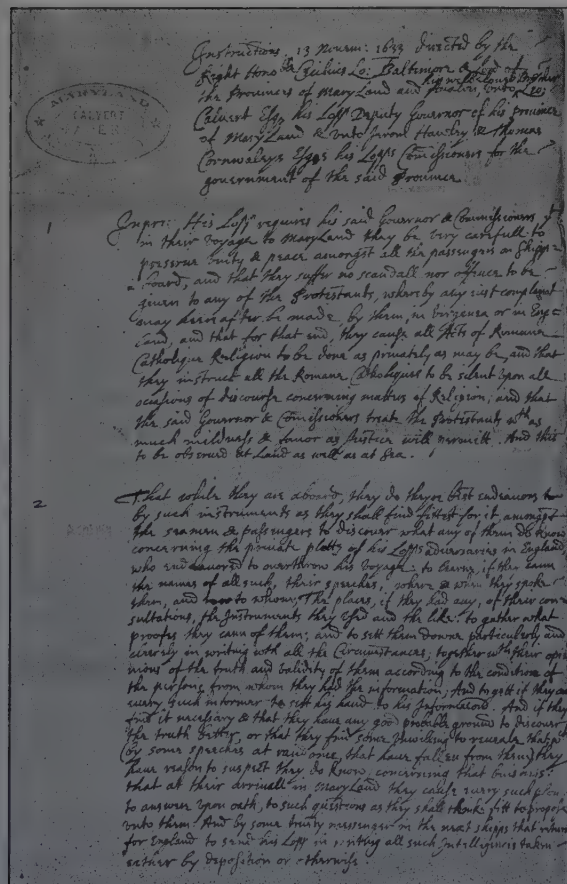 Instructions 13 Novem: 1633 directed by the
Right Honoble Cecilius Lo: Baltimore & Lord of
the Provinces of Mary Land and Avalon unto his well beloved Brother Leo:
Calvert Esqr his Lopps Deputy Governor of his province
of Mary Land & unto Jerom Hawley & Thomas
Cornwaleys Esqrs his Lopps Commissioners for the
government of the said Province.
MARYLAND
CALVERT
1
Inpri: His Lopp requires his said Governor & Commissioners yt
in their voyage to Mary Land they be very carefull to
preserve unity & peace amongst all the passengers on Shipp-
board, and that they suffer no scandall nor offence to be
given to any of the Protestants, whereby any just complaint
may heereafter be made, by them, in Virginea or in Eng-
land, and that for that end, they cause all Acts of Romane
Catholique Religion to be done as privately as may be, and that
they instruct all the Romane Catholiques to be silent upon all
occasions of discourse concerning matters of Religion; and that
the said Governor & Commissioners treate the Protestants wth as
much mildness & favor as Justice will permitt. And this
to be observed at Land as well as at Sea.
2
That while they are aboard, they do theyre best endeavors
by such instruments as they shall find fittest for it, amongst
the seamen & passengers to discover what any of them do know
concerning the private plotts of his Lopps adversaries in England,
who endeavored to overthrow his voyage: to learne, if they cann
the names of all such, their speeches, where & when they spoke
them, and to whom; The places, if they had any, of their con-
sultations, the Instruments they used and the like: to gather what
proofes they cann of them; and to sett them downe particularly and
cleerely in writing wth all the Circumstances; together wth their opi-
nions of the truth and validity of them according to the condition of
the persons from whom they had the information; And to gett if they can
every such informer to sett his hand to his Informacion. And if they
find it necessary & that they have any good probable ground to discover
the truth better, or that they find some unwilling to reveale that
(by some speeches at randome, that have fallen from them) they
have reason to suspect they do know concerning that buisness:
that at their arrivall in Mary Land they cause every such pson
to answer upon oath, to such questions as they shall thinke fitt to propose
unto them: And by some trusty messenger in the next shipps that returne
for England to send his Lopp in writing all such Intelligences taken
either by deposition or otherwise.